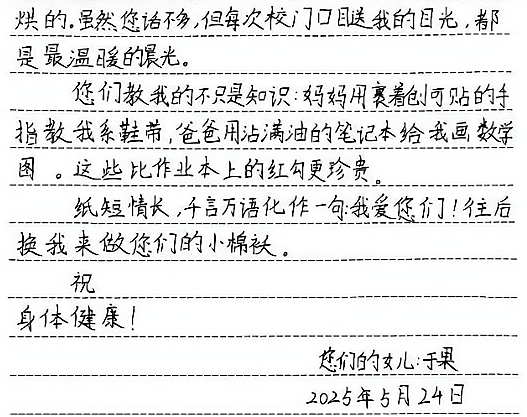 烘的。虽然您话不多，但每次校门口目送我的目光，都
是最温暖的晨光。
您们教我的不只是知识：妈妈用裹着创可贴的手
指教我系鞋带，爸爸用沾满油的笔记本给我画数学
图。这些比作业本上的红勾更珍贵。
纸短情长，千言万语化作一句：我爱您们！往后
换我来做您们的小棉袄。
祝
身体健康！
您们的女儿：于果
2025年5月24日